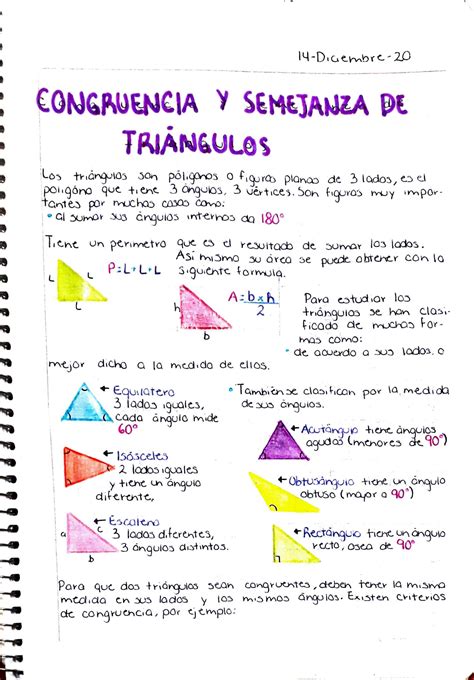 14-Diciembre-20
CONGRUENCIA Y SEMEJANZA DE
TRIÁNGULOS
Los triángulos son póligonos o figuras planas de 3 lados, es el
polígono que tiene 3 ángulos, 3 vértices. Son figuras muy impor-
tantes por muchas cosas como:
• al sumar sus ángulos internos da 180°
Tiene un perimetro que es el resultado de sumar los lados.
Así mismo su área se puede obtener con la
siguiente formula.
P=L+L+L
L L
L
A=b x h
2
h
b
Para estudiar los
triángulos se han clasi-
ficado de muchas for-
mas como:
• de acuerdo a sus lados. o
mejor dicho a la medida de ellos.
← Equilátero
3 lados iguales,
cada ángulo mide
60°
← Isósceles
2 lados iguales
y tiene un ángulo
diferente,
← Escaleno
3 lados diferentes,
3 ángulos distintos.
a c
b
• También se clasifican por la medida
de sus ángulos.
← Acutángulo tiene ángulos
agudos (menores de 90°)
← Obtusángulo tiene un ángulo
obtuso (mayor a 90°)
← Rectángulo tiene un ángulo
recto, osea de 90°
Para que dos triángulos sean congruentes, deben tener la misma
medida en sus lados y los mismos ángulos. Existen criterios
de congruencia, por ejemplo: